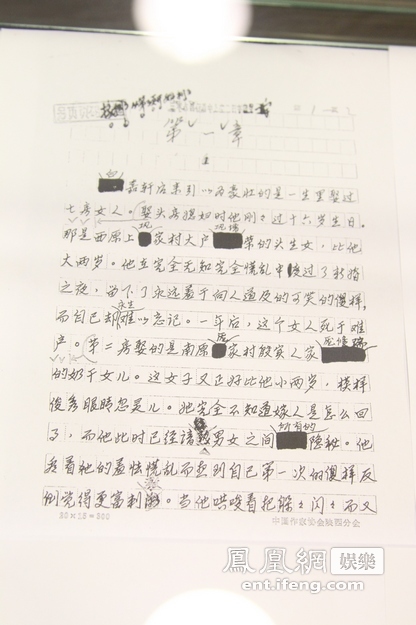 第一章
1
白嘉轩后来引以为豪壮的是一生里娶过
七房女人。娶头房媳妇时他刚々过十六岁生日。
那是西原上巩家村大户巩增荣的头生女,比他
大两岁。他在完全无知完全慌乱中度过了新婚
之夜,留下了永远羞于向人道及的可笑的傻样,
而自己却永生难以忘记。一年后,这个女人死于难
产。第二房娶的是南原庞家村殷实人家庞修瑞
的奶干女儿。这女子又正好比他小两岁,模样
俊秀眼睛忽灵儿。她完全不知道嫁人是怎么回
事,而他此时已经谙熟男女之间所有的隐秘。他
看着她的羞怯慌乱而想到自己第一次的傻样反
倒觉得更富刺激。当他哄唆着把躲々闪々而又
20×15=300 中国作家协会陕西分会
凤凰网 娱乐
ent.ifeng.com